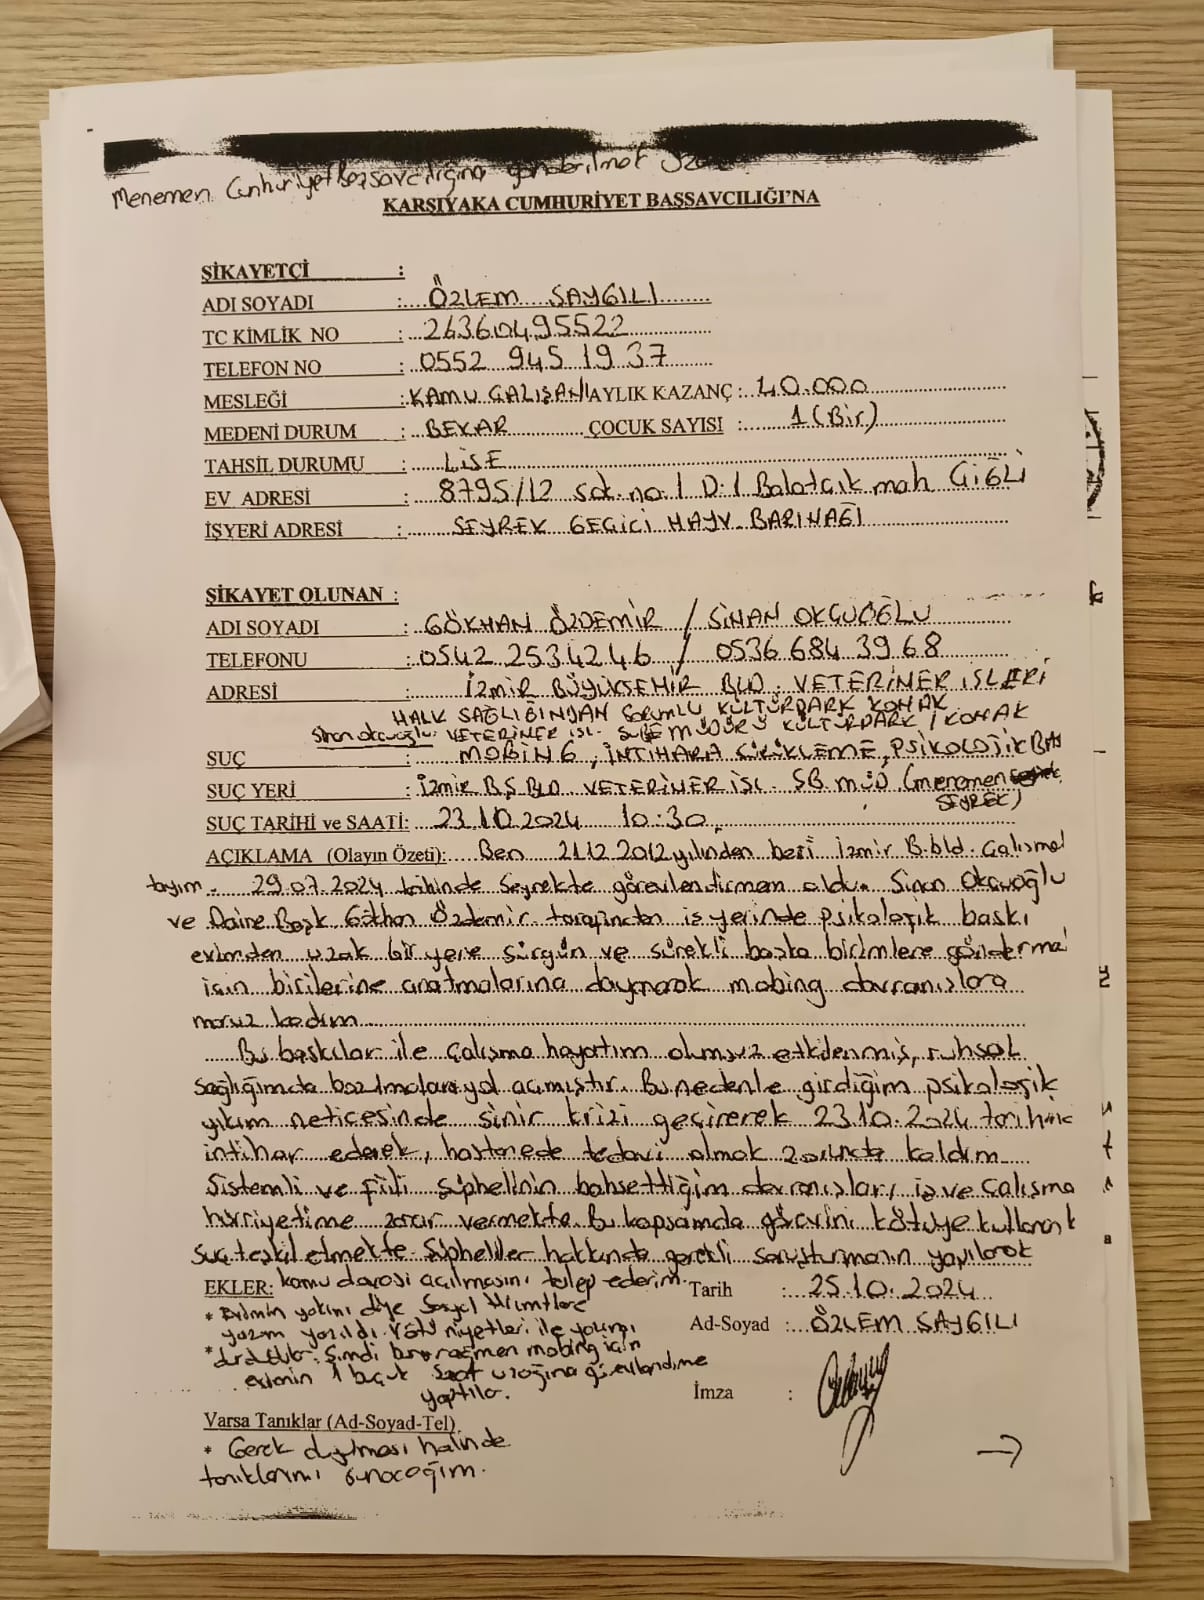 Menemen Cumhuriyet Başsavcılığına gönderilmek üzere
KARŞIYAKA CUMHURİYET BAŞSAVCILIĞI'NA
ŞİKAYETÇİ :
ADI SOYADI : ÖZLEM SAYGILI
TC KİMLİK NO : 26360495522
TELEFON NO : 0552 945 19 37
MESLEĞİ : KAMU ÇALIŞANI AYLIK KAZANÇ : 40.000
MEDENİ DURUM : BEKAR ÇOCUK SAYISI : 1 (Bir)
TAHSİL DURUMU : LİSE
EV ADRESİ : 8795/12 sok. no.1 D:1 Balatçık mah ÇİĞLİ
İŞYERİ ADRESİ : SEYREK GEÇİCİ HAYV. BARINAĞI
ŞİKAYET OLUNAN :
ADI SOYADI : GÖKHAN ÖZDEMİR / SİNAN OKÇUOĞLU
TELEFONU : 0542 2534246 / 0536 684 39 68
ADRESİ : İZMİR BÜYÜKŞEHİR BLD. VETERİNER İŞLERİ
HALK SAĞLIĞINDAN SORUMLU KÜLTÜRPARK KONAK
Sinan okçuoğlu: VETERİNER İŞL. ŞUBE MÜDÜRÜ KÜLTÜRPARK / KONAK
SUÇ : MOBİNG, İNTİHARA SÜRÜKLEME, PSİKOLOJİK
SUÇ YERİ : İzmir B.Ş BLD VETERİNER İŞL. ŞB MÜD (menemen
SEYREK)
SUÇ TARİHİ ve SAATİ: 23.10.2024 10:30
AÇIKLAMA (Olayın Özeti): Ben 21.12.2012 yılından beri İzmir B.bld. Çalışmak
tayım. 29.07.2024 tarihinde Seyrekte görevlendirmem oldu. Sinan Okçuoğlu
ve Daire Başk. Gökhan Özdemir tarafından iş yerinde psikolojik baskı
evimden uzak bir yere sürgün ve sürekli başka birimlere göndermek
için birilerine aratmalarına dayanarak mobing davranışlara
maruz kaldım.
Bu baskılar ile çalışma hayatım olumsuz etkilenmiş, ruhsal
sağlığımda bozulmalara yol açmıştır. Bu nedenle girdiğim psikolojik
yıkım neticesinde sinir krizi geçirerek 23.10.2024 tarihinde
intihar ederek, hastanede tedavi olmak zorunda kaldım.
Sistemli ve fiili şüphelinin bahsettiğim davranışları, iş ve çalışma
hürriyetime zarar vermekte. Bu kapsamda görevini kötüye kullanarak
suç teşkil etmekte. Şüpheliler hakkında gerekli soruşturmanın yapılarak
EKLER: kamu davası açılmasını talep ederim. Tarih : 25.10.2024
* Evimin yakını diye Sosyal Hizmetlere
yazım yazıldı. Kötü niyetleri ile yazımı
Ad-Soyad : ÖZLEM SAYGILI
* durdular. Şimdi buna rağmen mobing için
evimin 1 buçuk saat uzağına görevlendirme
yaptılar.
İmza :
Varsa Tanıklar (Ad-Soyad-Tel)
* Gerek duyulması halinde
tanıklarımı sunacağım.